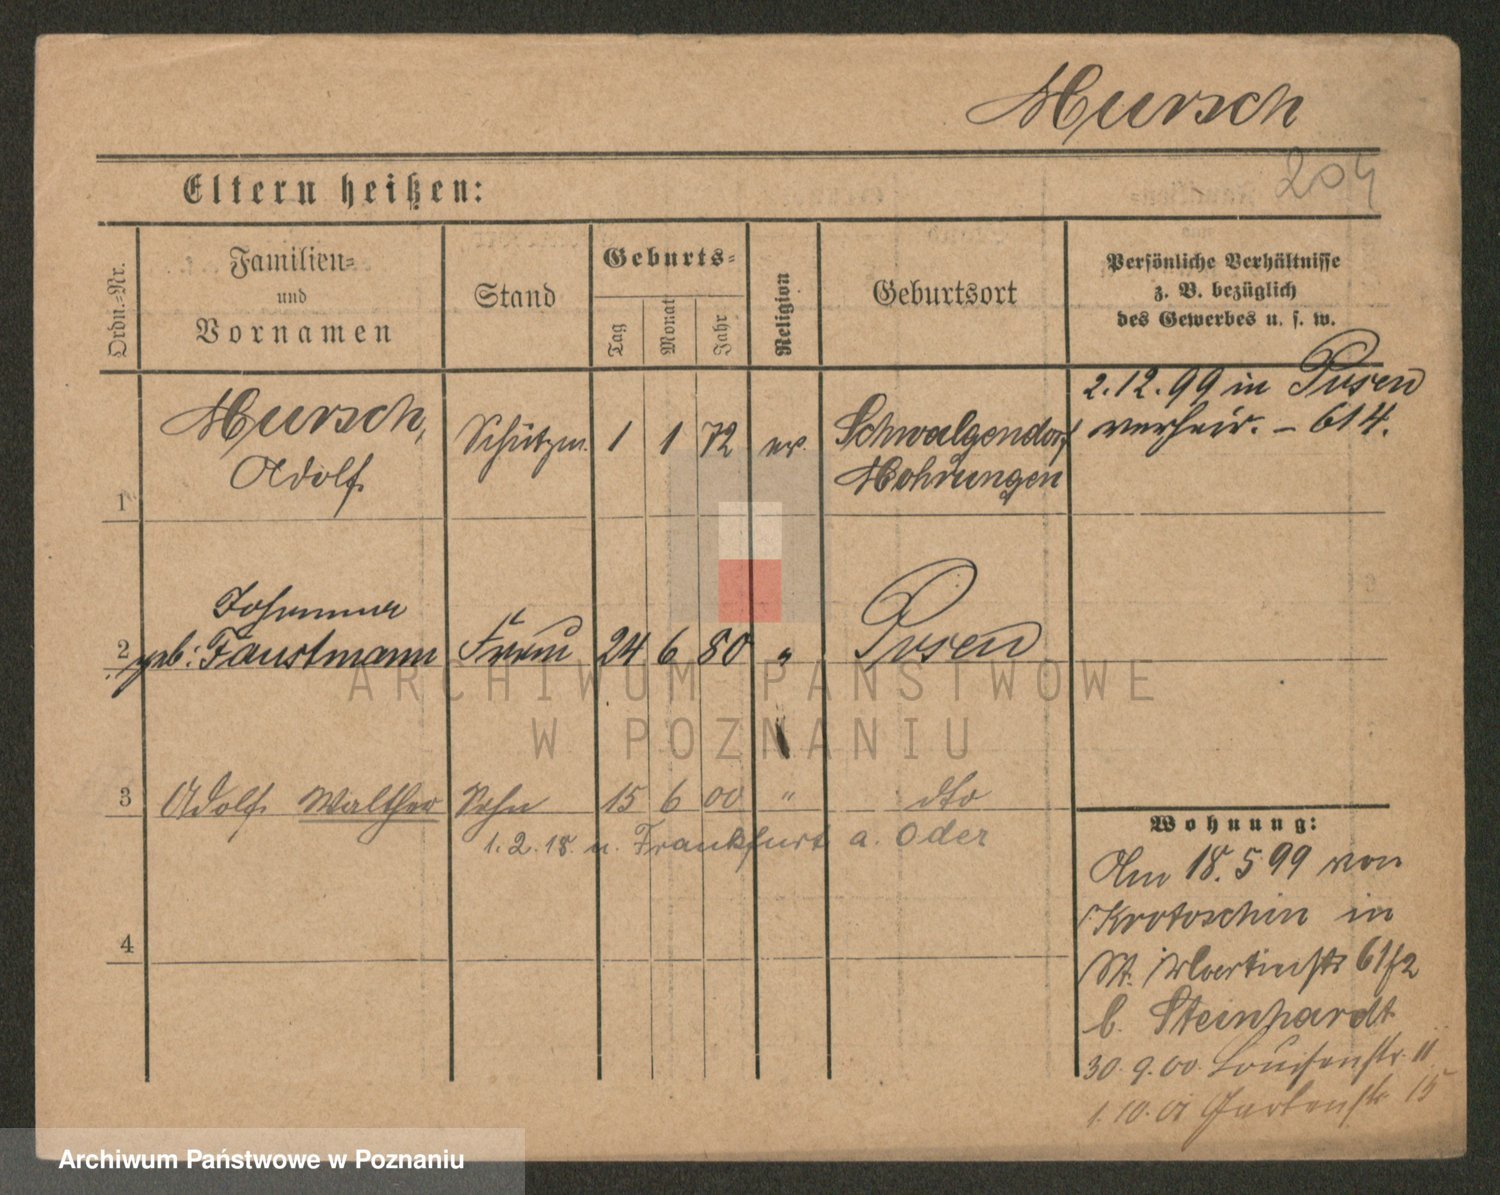 Mursch
204
Eltern heißen:
Ordn.-Nr.
Familien-
und
Vornamen
Stand
Geburts-
Tag
Monat
Jahr
Religion
Geburtsort
Persönliche Verhältnisse
z. B. bezüglich
des Gewerbes u. s. w.
1
Mursch,
Adolf.
Schutzm.
1 1 72
ev.
Schwalgendorf
Mohrungen
2.12.99 in Posen
verheir. - 614.
2
Johanna
geb: Faustmann
Frau
24 6 80
"
Posen
3
Adolf. Walther
Sohn
15 6 00
"
dto
1. 2. 18. n. Frankfurt a. Oder
4
Wohnung:
Am 18. 5 99 von
Krotoschin in
St. Martinstr 61/2
b. Steinhardt
30. 9. 00. Louisenstr. 11
1. 10. 01 Gartenstr. 15
ARCHIWUM PAŃSTWOWE
W POZNANIU
Archiwum Państwowe w Poznaniu